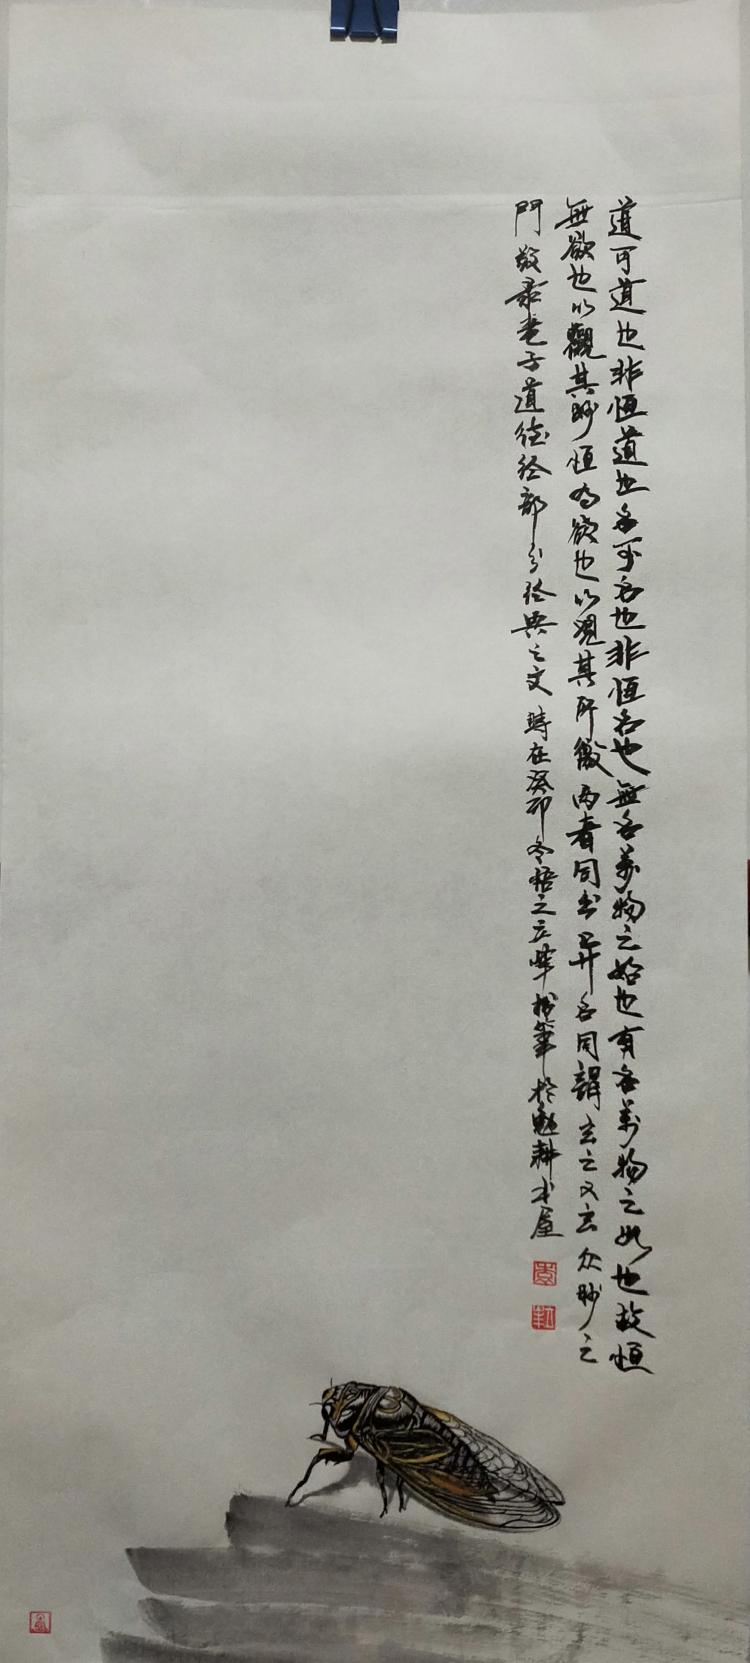 道可道也非恒道也名可名也非恒名也無名萬物之始也有名萬物之母也故恒
無欲也以觀其眇恒有欲也以觀其所徼兩者同出異名同謂玄之又玄众眇之
門敬录老子道德经部分经典之文時在癸卯冬悟之立峰拙筆於勉耕书屋